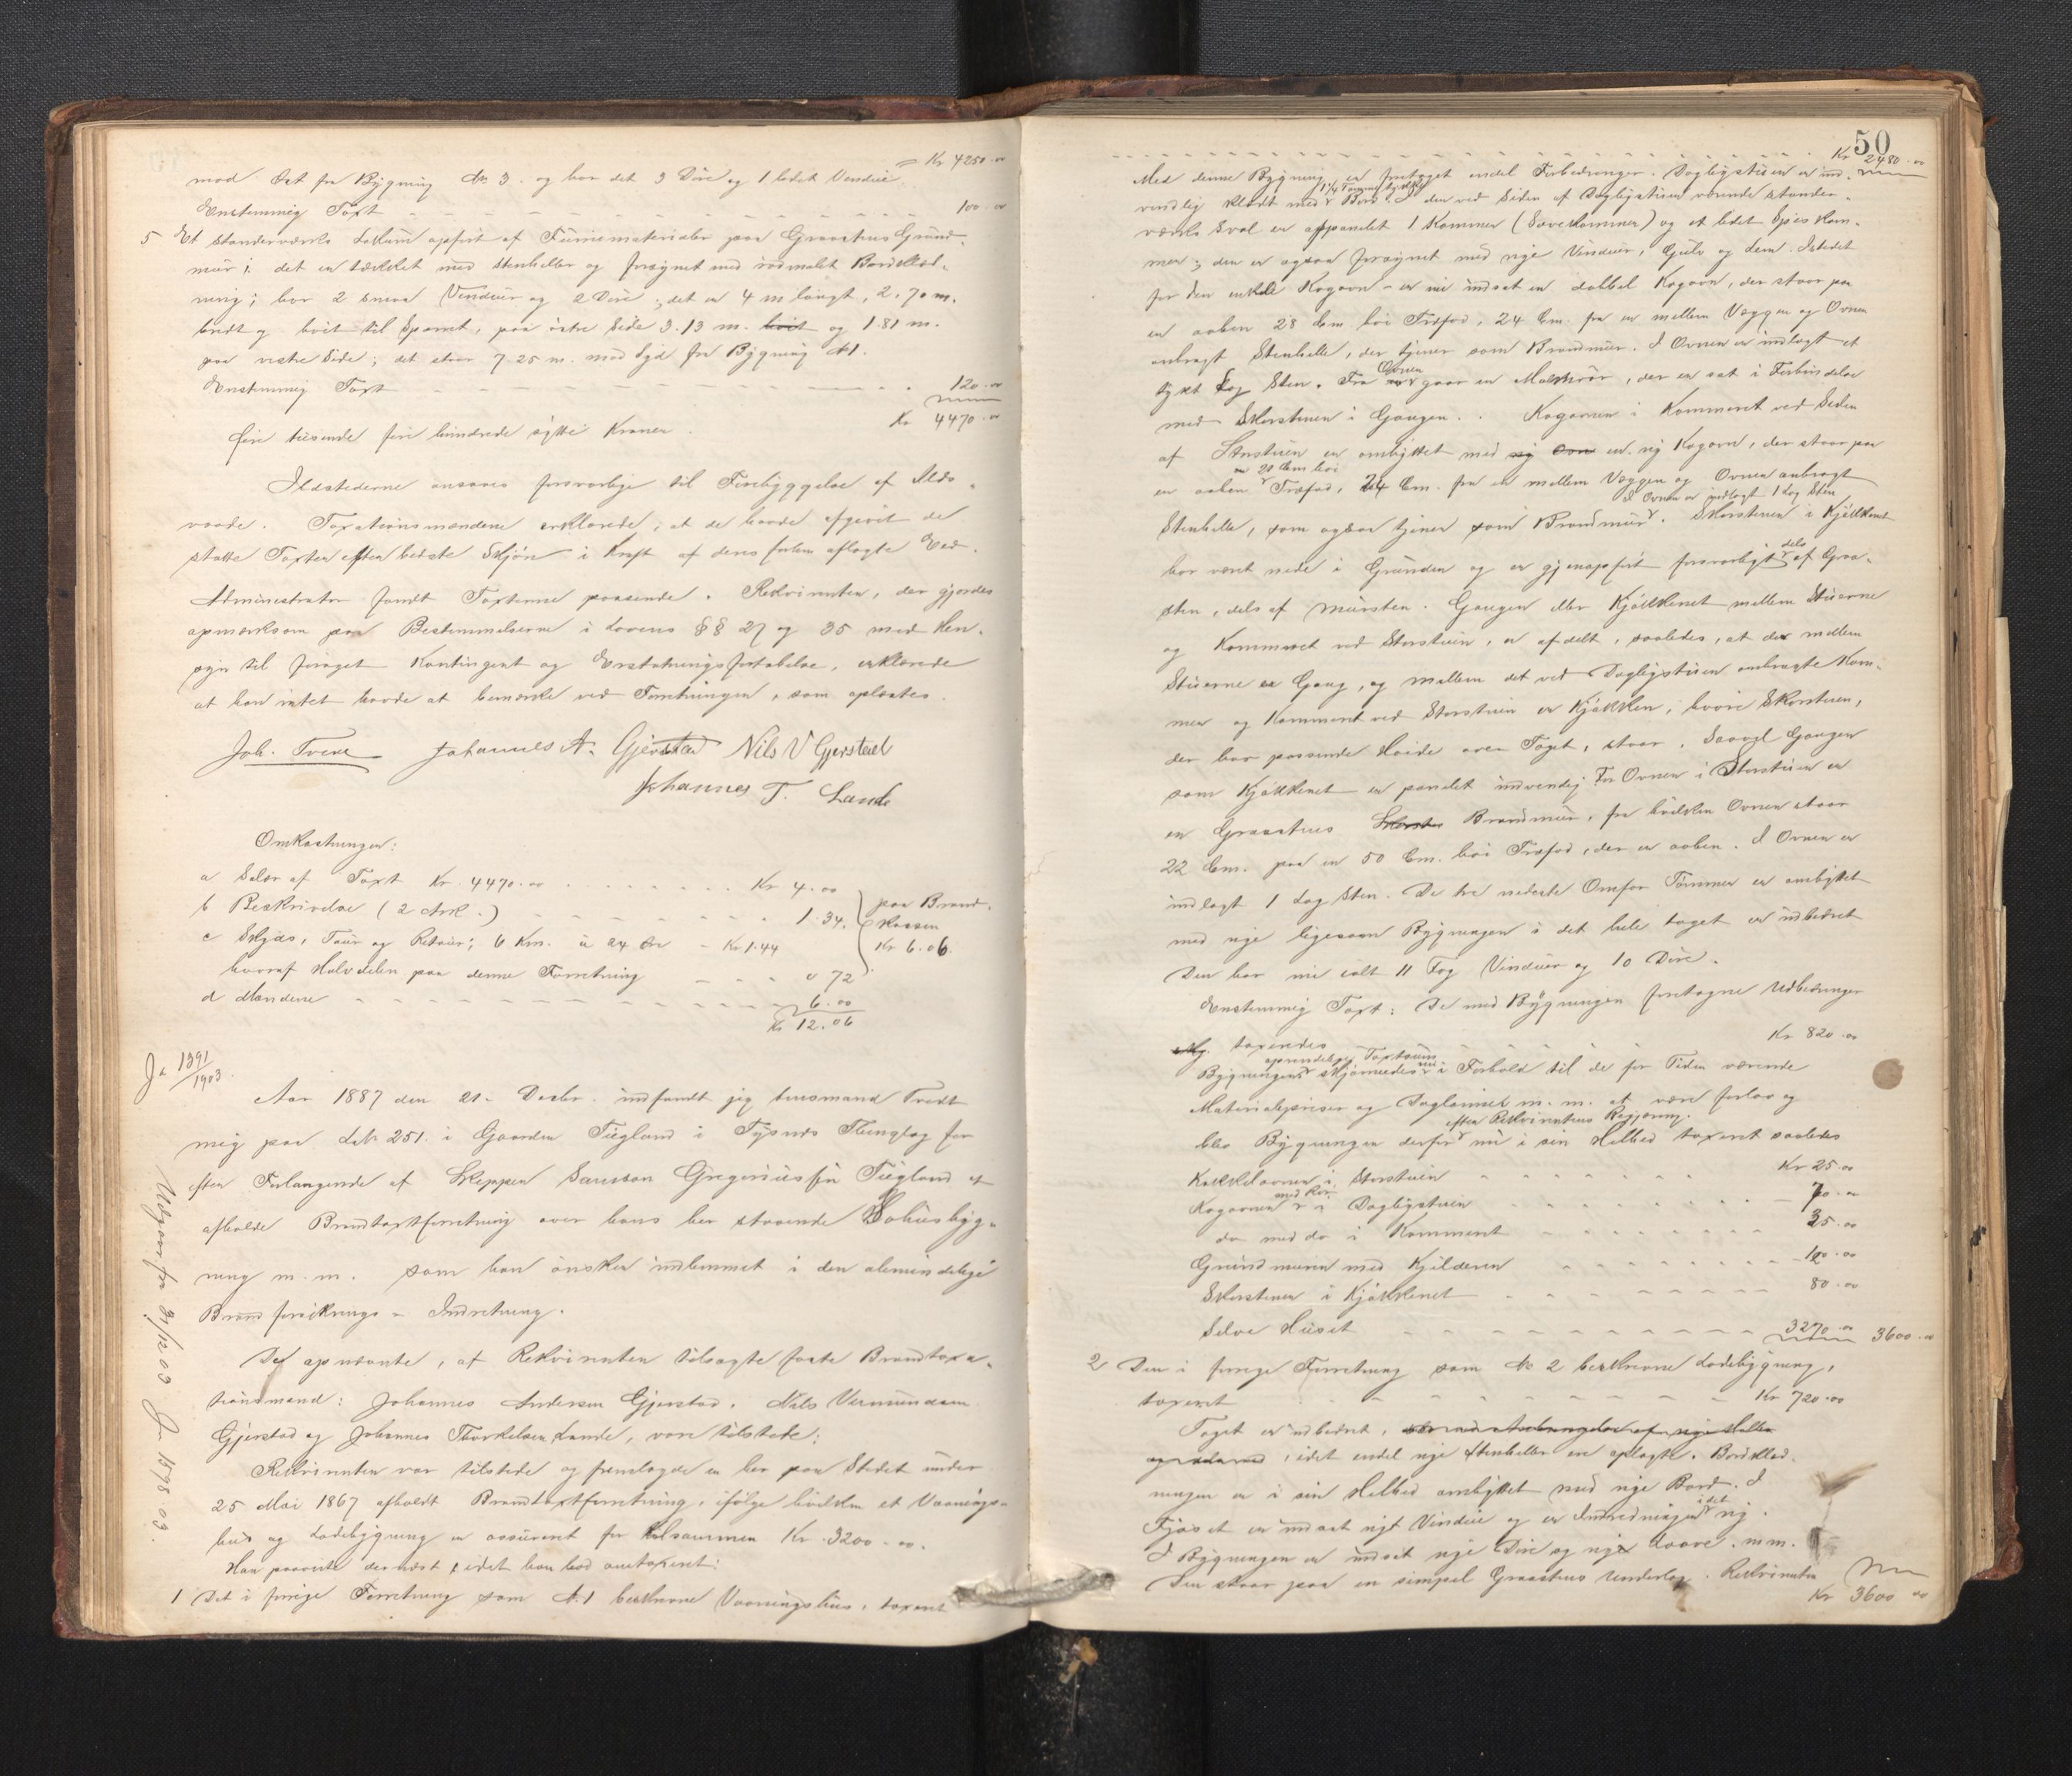 = Kr 4250.00
mod Øst fra Bygning № 3. og har det 3 Døre og 1 lidet Vindue.
Enstemmig Taxt 100.00
5 Et standerværks Lokum opført af Furumaterialer paa Graastens Grund-
mur; det er tækket med Stenheller og forsynet med rødmalet Bordklæd-
ning; har 2 smaa Vinduer og 2 Døre; det er 4 m langt, 2.70 m.
bredt og høit til Sparret, paa østre Side 3.13 m. høit og 1.81 m.
paa vestre Side; det staar 7.25 m. mod Syd fra Bygning № 1.
Enstemmig Taxt 120.00
Kr 4470.00
fire tusende fire hundrede sytti Kroner.
Ildstederne ansaaes forsvarlige til Forebyggelse af Ilds-
vaade. Taxationsmændene erklærede, at de havde afgivit de
satte Taxter efter bedste Skjøn i Kraft af deres forhen aflagte Eed.
Administrator fandt Taxterne passende. Rekvirenten, der gjordes
opmærksom paa Bestemmelserne i Lovens §§ 27 og 35 med Hen-
syn til forøget Kontingent og Erstatningsfortabelse, erklærede
at han intet havde at bemærke ved Forretningen, som oplæstes.
Joh. Tvedt Johannes A. Gjerstad Nils V Gjerstad
Johannes T. Lande
Omkostninger:
a Salær af Taxt Kr. 4470.00 Kr 4.00
b Beskrivelse (2 Ark.) 1.34. paa Brand-
c Skyds, Tour og Retour; 6 Km. à 24 Øre - Kr 1.44 kassen
Kr 6.06.
hvoraf Halvdelen paa denne Forretning " 72
d Mændene 6.00
Kr 12.06
Jr 1391/1903.
Aar 1887 den 21. Decbr. indfandt jeg Lensmand Tvedt
mig paa Løb. 251. i Gaarden Tægland i Tysnes Thinglag for
efter Forlangende af Skipper Samson Gregoriussøn Tægland at
afholde Brandtaxtforretning over hans her staaende Vohusbyg-
ning m.m. som han ønsker indlemmet i den alemindelige
Brandforsikrings-Indretning.
De opnævnte, af Rekvirenten tilsagte faste Brandtaxa-
tionsmænd: Johannes Andersen Gjerstad, Nils Vermundsen
Gjerstad og Johannes Thorkelsen Lande, vare tilstede;
Rekvirenten var tilstede og fremlagde en her paa Stedet under
25 Mai 1867 afholdt Brandtaxtforretning, ifølge hvilken et Vaanings-
hus og Ladebygning er assureret for tilsammen Kr. 3200.00.
Han paaviste dernæst, idet han bad omtaxeret:
1 Det i forrige Forretning som № 1 beskrevne Vaaningshus, taxeret
Udgaar fra 31/12 03 Jr 1578 03.
50
Kr 2480.00
Med denne Bygning er foretaget endel Forbedringer. Dagligstuen er ind-
vendig klædt med 1 1/4 Tommes tykke Bord. I den ved Siden af Dagligstuen værende stander-
værks Sval er afpanelet 1 Kammer (Sovekammer) og et lidet Spiskam-
mer; den er ogsaa forsynet med nye Vinduer, Gulv og Lem. Istedet
for den enkle Kogovn er nu indsat en dobbel Kogovn, der staar paa
en aaben 28 Cm høi Træfod, 24 Cm. fra en mellem Væggen og Ovnen
anbragt Stenhelle, der tjener som Brandmur. I Ovnen er indlagt et
tykt Lag Sten. Fra Ovnen gaar en Malmrør, der er sat i Forbindelse
med Skorstenen i Gangen. Kogovnen i Kammeret ved Siden
af Storstuen er ombyttet med ny Ovn en ny Kogovn, der staar paa
en aaben 20 Cm høi Træfod, 24 Cm. fra en mellem Væggen og Ovnen anbragt
Stenhelle, som ogsaa tjener som Brandmur. I Ovnen er indlagt 1 Lag Sten. Skorstenen i Kjøkkenet
har været nede i Grunden og er gjenopført forsvarligt dels af Graa-
sten, dels af Mursten. Gangen eller Kjøkkenet mellem Stuerne
og Kammeret ved Storstuen, er afdelt, saaledes, at der mellem
Stuerne er Gang, og mellem det ved Dagligstuen anbragte Kam-
mer og Kammeret ved Storstuen er Kjøkken, hvori Skorstenen,
der har passende Høide over Taget, staar. Saavel Gangen
som Kjøkkenet er panelet indvendig. For Ovnen i Storstuen er
en Graastens Skorste Brandmur, fra hvilken Ovnen staar
22 Cm. paa en 50 Cm. høi Træfod, der er aaben. I Ovnen er
indlagt 1 Lag Sten. De tre nederste Omfar Tømmer er ombyttet
med nye ligesom Bygningen i det hele taget er udbedret
Den har nu ialt 11 Fag Vinduer og 10 Døre.
Enstemmig Taxt: De med Bygningen foretagne Udbedringer
taxeredes Kr 820.00
Bygningens oprindelige Taxtsum skjønnedes nu i Forhold til de for Tiden værende
Materialpriser og Daglønnet m.m. at være for lav og
blev Bygningen derfor efter Rekvirentens Begjæring nu i sin Helhed taxeret saaledes
Kakkelovnen i Storstuen Kr 25.00
Kogovnen med Rør i Dagligstuen 70.00
do med do i Kammeret 35.00
Grundmuren med Kjælderen 120.00
Skorstenen i Kjøkkenet 80.00
Selve Huset 3270.00 3600.00
2 Den i forrige Forretning som № 2 beskrevne Ladebygning,
taxeret Kr 720.00
Taget er udbedret,
idet endel nye Stenheller ere oplagte. Bordklæd-
ningen er i sin Helhed ombyttet med nye Bord. I
Fjøset er indsat nyt Vindue og er Indredningen i det ny.
I Bygningen er indsat nye Døre og nye Laave m.m.
Den staar paa en simpel Graastens Underlag. Rekvirenten
Kr 3600 00